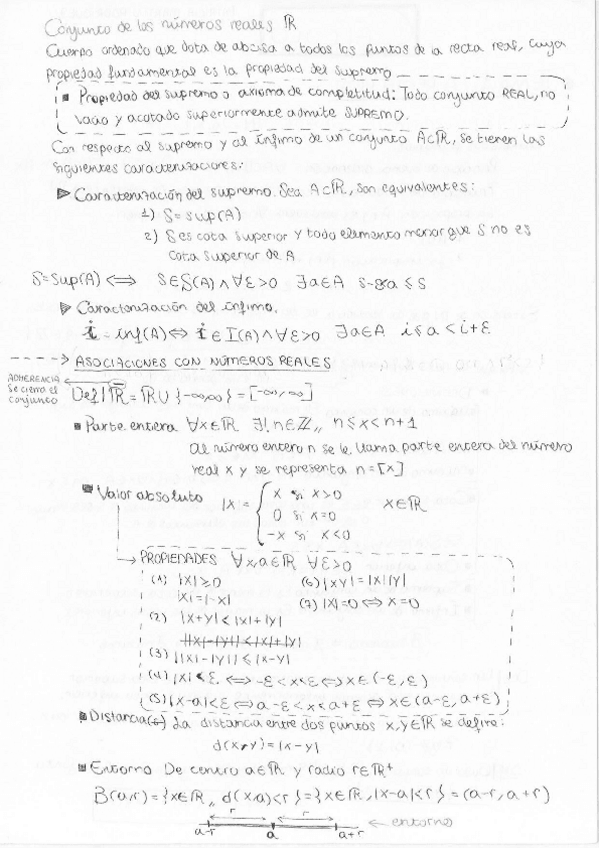 Conjunto de los números reales ℝ
Cuerpo ordenado que dota de abcisa a todos los puntos de la recta real, cuya
propiedad fundamental es la propiedad del supremo
▪ Propiedad del supremo o axioma de completitud: Todo conjunto REAL, no
vacío y acotado superiormente admite SUPREMO.
Con respecto al supremo y al ínfimo de un conjunto A⊂ℝ, se tienen las
siguientes caracterizaciones:
▷ Caracterización del supremo. Sea A⊂ℝ, son equivalentes:
1) S=sup(A)
2) S es cota superior y todo elemento menor que S no es
cota superior de A
S=Sup(A) ⟺ S∈S(A) ∧ ∀ε>0 ∃a∈A S-ε<a≤S
▷ Caracterización del ínfimo.
i = inf(A) ⟺ i∈I(A) ∧ ∀ε>0 ∃a∈A i≤a<i+ε
---> ASOCIACIONES CON NÚMEROS REALES
ADHERENCIA
Se cierra el
conjunto
Def| ℝ̅ = ℝ ∪ {-∞,∞} = [-∞,∞]
▪ Parte entera ∀x∈ℝ ∃! n∈ℤ,, n≤x<n+1
Al número entero n se le llama parte entera del número
real x y se representa n=[x]
▪ Valor absoluto |x| = { x si x>0
0 si x=0 x∈ℝ
-x si x<0
PROPIEDADES ∀x,a∈ℝ ∀ε>0
(1) |x|≥0 (6) |xy|=|x||y|
|x|=|-x| (7) |x|=0 ⟺ x=0
(2) |x+y|≤|x|+|y|
||x|-|y||≤|x|+|y|
(3) ||x|-|y||≤|x-y|
(4) |x|<ε ⟺ -ε<x<ε ⟺ x∈(-ε,ε)
(5) |x-a|<ε ⟺ a-ε<x<a+ε ⟺ x∈(a-ε,a+ε)
▪ Distancia(6) La distancia entre dos puntos x,y∈ℝ se define:
d(x,y)=|x-y|
▪ Entorno De centro a∈ℝ y radio r∈ℝ⁺
B(a,r)={x∈ℝ,, d(x,a)<r}={x∈ℝ, |x-a|<r}=(a-r,a+r)
r r
a-r a a+r ← entorno